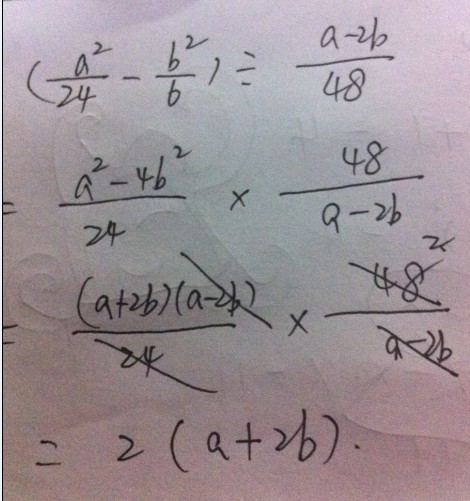 (a²/24 - b²/6) ÷ (a-2b)/48
= (a²-4b²)/24 × 48/(a-2b)
= (a+2b)(a-2b)/24 × 48/(a-2b) 2
= 2(a+2b).